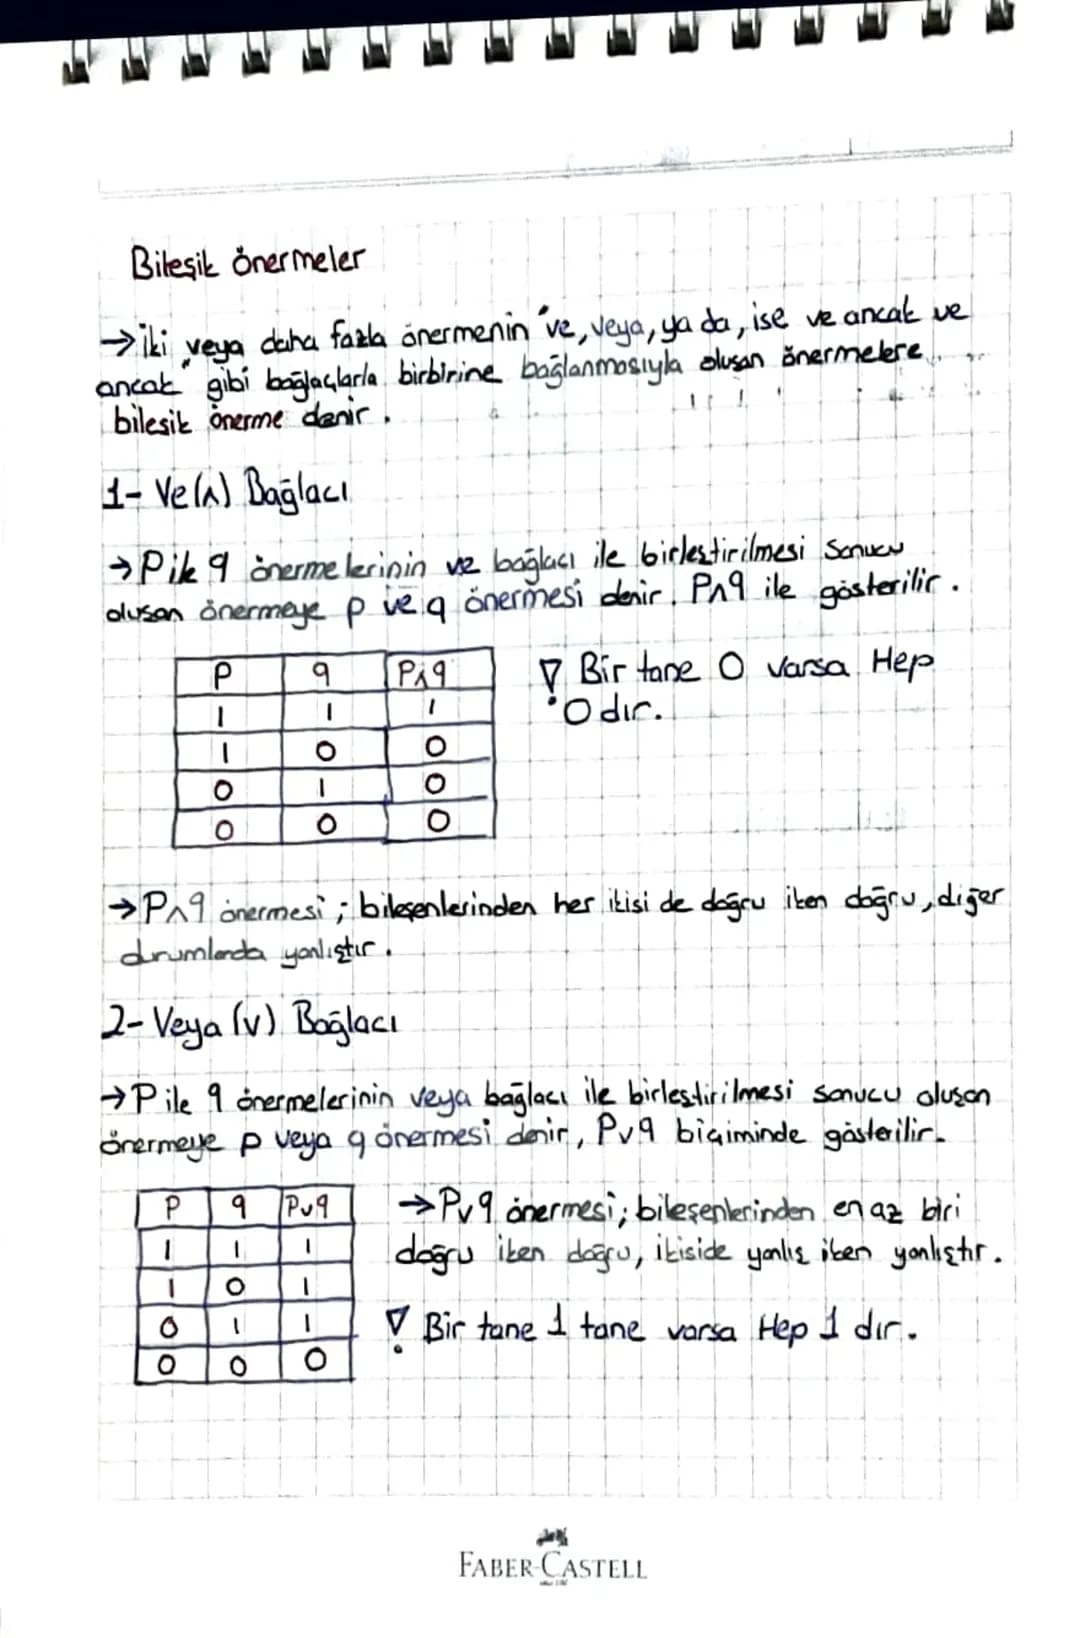 Bileşik önermeler
→İki veya daha fazla önermenin "ve, veya, ya da, ise ve ancak ve
ancak" gibi bağlaçlarla birbirine bağlanmasıyla oluşan önermelere
bileşik önerme denir.
1- Ve(∧) Bağlacı
→Pik q önermelerinin ve bağlacı ile birleştirilmesi sonucu
oluşan önermeye p ve q önermesi denir. P∧q ile gösterilir.
P q P∧q
1 1 1
1 0 0
0 1 0
0 0 0
! Bir tane 0 varsa Hep
0 dır.
→P∧q önermesi; bileşenlerinden her ikisi de doğru iken doğru, diğer
durumlarda yanlıştır.
2- Veya (v) Bağlacı
→P ile q önermelerinin veya bağlacı ile birleştirilmesi sonucu oluşan
önermeye p veya q önermesi denir, Pvq biçiminde gösterilir.
P q Pvq
1 1 1
1 0 1
0 1 1
0 0 0
→Pvq önermesi; bileşenlerinden en az biri
doğru iken doğru, ikiside yanlış iken yanlıştır.
! Bir tane 1 tane varsa Hep 1 dır.
FABER-CASTELL